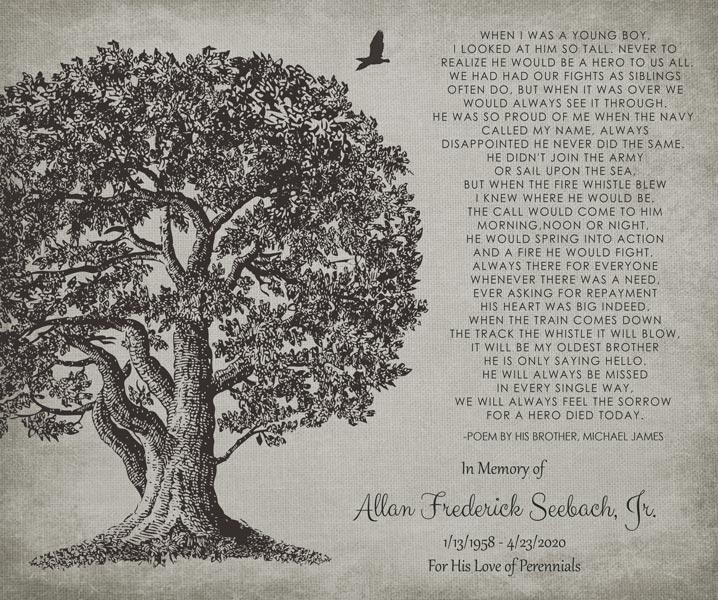 WHEN I WAS A YOUNG BOY,
I LOOKED AT HIM SO TALL. NEVER TO
REALIZE HE WOULD BE A HERO TO US ALL.
WE HAD HAD OUR FIGHTS AS SIBLINGS
OFTEN DO, BUT WHEN IT WAS OVER WE
WOULD ALWAYS SEE IT THROUGH.
HE WAS SO PROUD OF ME WHEN THE NAVY
CALLED MY NAME, ALWAYS
DISAPPOINTED HE NEVER DID THE SAME.
HE DIDN'T JOIN THE ARMY
OR SAIL UPON THE SEA,
BUT WHEN THE FIRE WHISTLE BLEW
I KNEW WHERE HE WOULD BE.
THE CALL WOULD COME TO HIM
MORNING,NOON OR NIGHT,
HE WOULD SPRING INTO ACTION
AND A FIRE HE WOULD FIGHT.
ALWAYS THERE FOR EVERYONE
WHENEVER THERE WAS A NEED,
EVER ASKING FOR REPAYMENT
HIS HEART WAS BIG INDEED.
WHEN THE TRAIN COMES DOWN
THE TRACK THE WHISTLE IT WILL BLOW,
IT WILL BE MY OLDEST BROTHER
HE IS ONLY SAYING HELLO.
HE WILL ALWAYS BE MISSED
IN EVERY SINGLE WAY,
WE WILL ALWAYS FEEL THE SORROW
FOR A HERO DIED TODAY.
-POEM BY HIS BROTHER, MICHAEL JAMES
In Memory of
Allan Frederick Seebach, Jr.
1/13/1958 - 4/23/2020
For His Love of Perennials